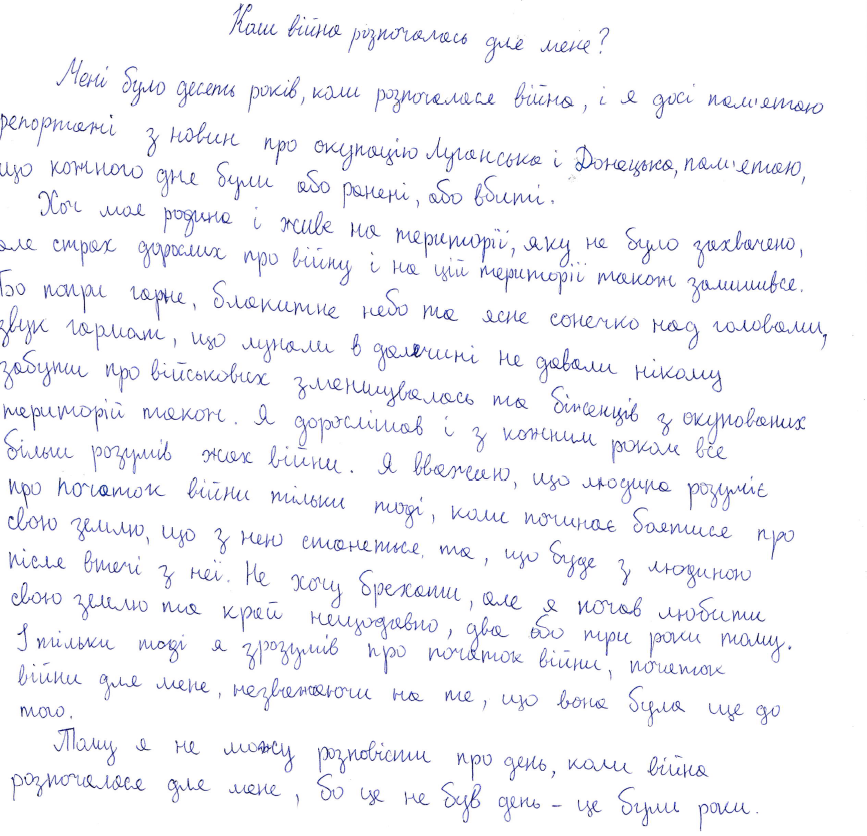 Коли війна розпочалась для мене?
Мені було десеть років, коли розпочалася війна, і я досі пам'ятаю
репортажі з новин про окупацію Луганська і Донецька, пам'ятаю,
що кожного дня були або ранені, або вбиті.
Хоч моя родина і живе на території, яку не було захвачено,
але страх дорослих про війну і на цій території також залишився.
Бо попри гарне, блакитне небо та ясне сонечко над головами,
звук гармат, що лунали в далечині не давали нікому
забути про військових зменшувалась та біженців з окупованих
територій також. Я дорослішав і з кожним роком все
більш розумів жах війни. Я вважаю, що людина розуміє
про початок війни тільки тоді, коли починає боятися про
свою землю, що з нею станеться, та, що буде з людиною
після втечі з неї. Не хочу брехати, але я почав любити
свою землю та край нещодавно, два або три роки тому.
І тільки тоді я зрозумів про початок війни, початок
війни для мене, незважаючи на те, що вона була ще до
того.
Тому я не можу розповісти про день, коли війна
розпочалася для мене, бо це не був день – це були роки.